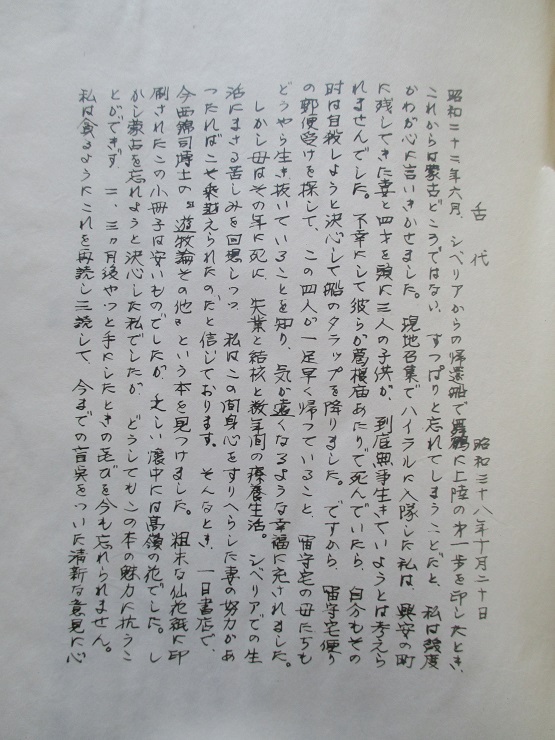 舌代
昭和三十八年十月二十日
昭和二十二年六月、シベリアからの帰還船で舞鶴に上陸の第一歩を印したとき、
これからは蒙古どころではない、すっぱりと忘れてしまうことだと、私は幾度
かわが心に言いきかせました。現地召集でハイラルに入隊した私は、興安の町
に残してきた妻と四才を頭に三人の子供が、到底無事生きていようとは考えら
れませんでした。不幸にして彼らが葛根廟あたりで死んでいたら、自分もその
時は自殺しようと決心して船のタラップを降りました。ですから、留守宅便り
の郵便受けを探して、この四人が一足早く帰っていること、留守宅の母たちも
どうやら生き抜いていることを知り、気が遠くなるような幸福に充されました。
しかし母はその年に死に、失業と結核と数年間の療養生活。シベリアでの生
活にまさる苦しみを回想しつつ、私はこの間身心をすりへらした妻の努力があ
ったればこそ乗越えられたのだと信じております。そんなとき、一日書店で、
今西錦司博士の〝遊牧論その他〟という本を見つけました。粗末な仙花紙に印
刷されたこの小冊子は安いものでしたが、乏しい懐中には高嶺の花でした。し
かし蒙古を忘れようと決心した私でしたが、どうしてもこの本の魅力に抗うこ
とができず、二、三ヵ月後やっと手にしたときの喜びを今も忘れられません。
私は貪るようにこれを再読し三読して、今までの盲点をついた清新な意見に心